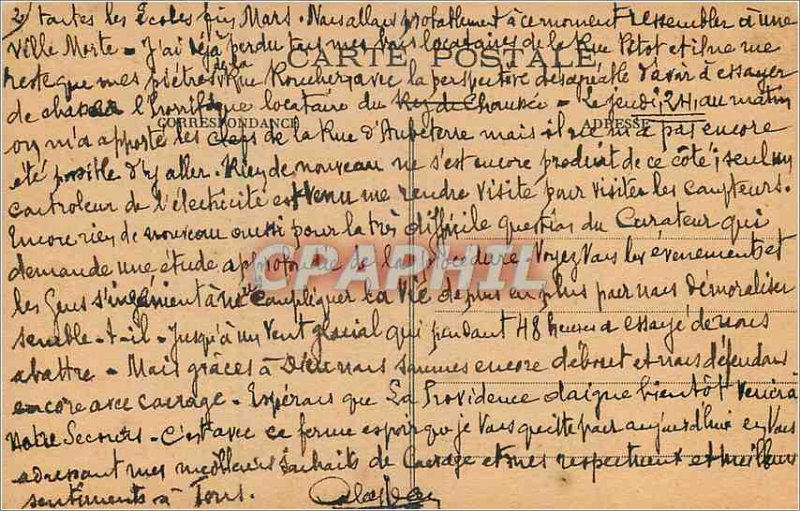 2) toutes les Écoles fin Mars. Nous allons probablement à ce moment ressembler à une
ville Morte - J'ai déjà perdu tous mes bons locataires de la Rue Pitot et il ne me
CARTE POSTALE
reste que mes piètres de la Rue Roucher, avec la perspective désagréable d'avoir à essayer
de chasser l'horrifique locataire du Rez de Chaussée - Le jeudi, 24, au matin
CORRESPONDANCE
ADRESSE
on m'a apporté les clefs de la Rue d'Aubeterre mais il ne m'a pas encore
été possible d'y aller. Rien de nouveau ne s'est encore produit de ce côté; seul un
controleur de l'électricité est venu me rendre visite pour visiter les compteurs.
Encore rien de nouveau aussi pour la très difficile question du Curateur qui
demande une étude approfondie de la procédure. Voyez Vous les événements et
CPAPHIL
les Gens s'ingénient à compliquer la vie de plus en plus pour nous démoraliser
semble-t-il - Jusqu'à un Vent glacial qui pendant 48 heures a essayé de nous
abattre - Mais grâces à Dieu nous sommes encore debout et nous défendons
encore avec courage. Espérons que La Providence daigne bientôt venir à
notre Secours - C'est avec ce ferme espoir que je Vous quitte pour aujourdhui en Vous
adressant mes meilleurs souhaits de Courage et mes respectueux et meilleurs
sentiments à Tous.